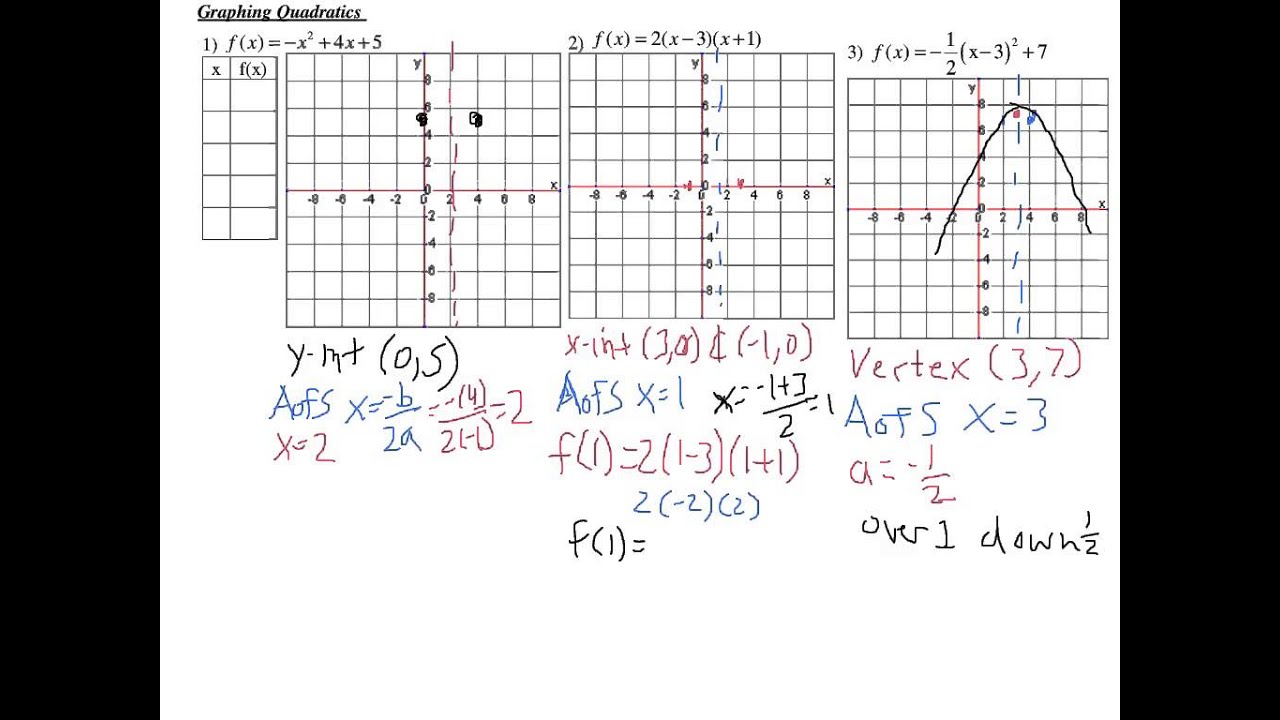 Graphing Quadratics
1) f(x) = -x² + 4x + 5
x f(x)
y
8
6
4
2
0
-8 -6 -4 -2 0 2 4 6 8 x
-2
-4
-6
-8
y-int (0,5)
AofS x = -b/2a = -(4)/2(-1) = 2
x = 2
2) f(x) = 2(x-3)(x+1)
y
8
6
4
2
0
-8 -6 -4 -2 0 2 4 6 8 x
-2
-4
-6
-8
x-int (3,0) & (-1,0)
AofS x = 1 x = -1+3/2 = 1
f(1) = 2(1-3)(1+1)
2(-2)(2)
f(1) =
3) f(x) = -1/2(x-3)² + 7
y
8
6
4
2
0
-8 -6 -4 -2 0 2 4 6 8 x
-2
-4
-6
-8
Vertex (3,7)
AofS X = 3
a = -1/2
over 1 down 1/2